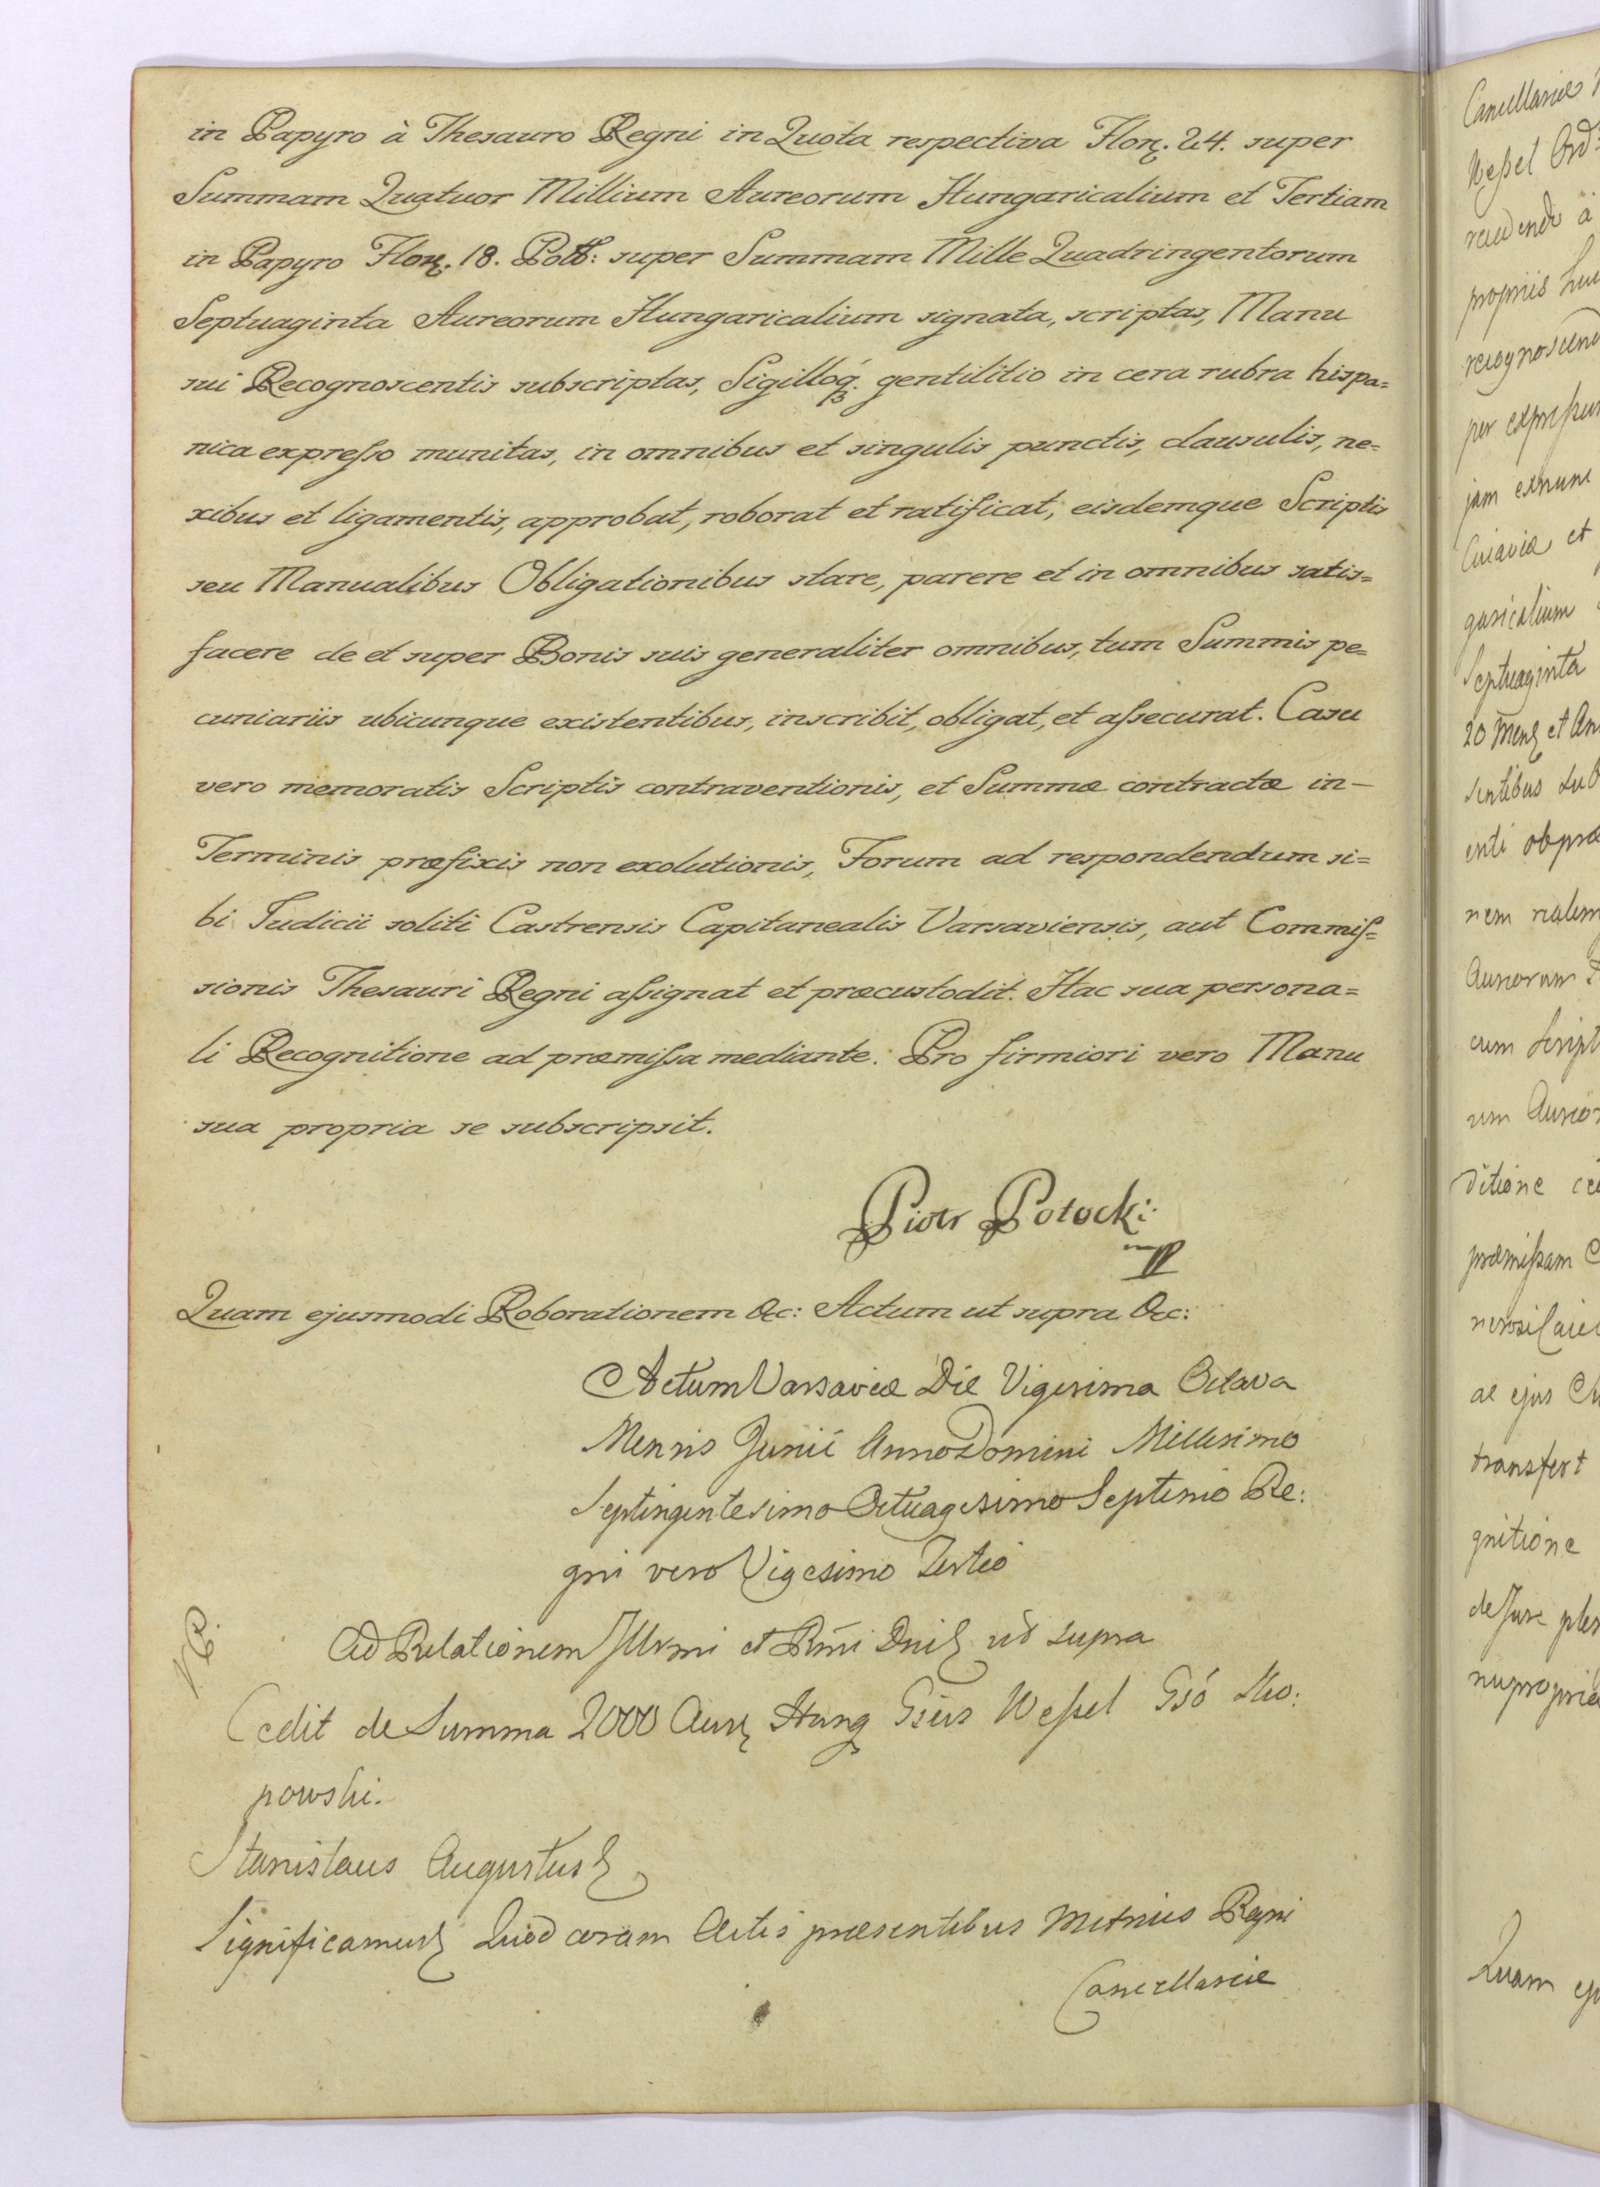 in Papyro à Thesauro Regni in Quota respectiva Flor. 24. super
Summam Quatuor Millium Aureorum Hungaricalium et Tertiam
in Papyro Flor. 18. Poll: super Summam Mille Quadringentorum
Septuaginta Aureorum Hungaricalium signata, scriptas, Manu
sui Recognoscentis subscriptas, Sigilloq. gentilitio in cera rubra hispa=
nica expreſso munitas, in omnibus et singulis punctis, clausulis, ne=
xibus et ligamentis, approbat, roborat et ratificat; eisdemque Scriptis
seu Manualibus Obligationibus stare, parere et in omnibus satis=
facere de et super Bonis suis generaliter omnibus, tum Summis pe=
cuniariis ubicunque existentibus, inscribit, obligat, et aſsecurat. Casu
vero memoratis Scriptis contraventionis, et Summæ contractæ in-
Terminis præfixis non exolutionis, Forum ad respondendum si=
bi Judicii soliti Castrensis Capitanealis Varsaviensis, aut Commiſ=
sionis Thesauri Regni aſsignat et præcustodit. Hac sua persona=
li Recognitione ad præmiſsa mediante. Pro firmiori vero Manu
sua propria se subscripsit.
Piotr Potocki
Quam ejusmodi Roborationem &c: Actum ut supra &c:
Actum Varsaviæ Die Vigesima Octava
Mensis Junii Anno Domini Millesimo
Septingentesimo Octuagesimo Septimo Re:
gni vero Vigesimo Tertio
Ad Relationem Illrmi et Rmi Dni ut supra
Cedit de Summa 2000 Aur Hung Gsus Weſsel Gso
powski.
Stanislaus Augustus
Significamus Quod coram Actis præsentibus Metrices Regni
Cancellariæ
Cancellariæ
Weſsel Ord:
à
propriis
per
jam exnunc
Cujaviæ et
garicalium
Septuaginta
20 Mens et
nem
cum Script
ditione
præmiſsam
ac ejus
transfert
gnitione
de Jure
Quam